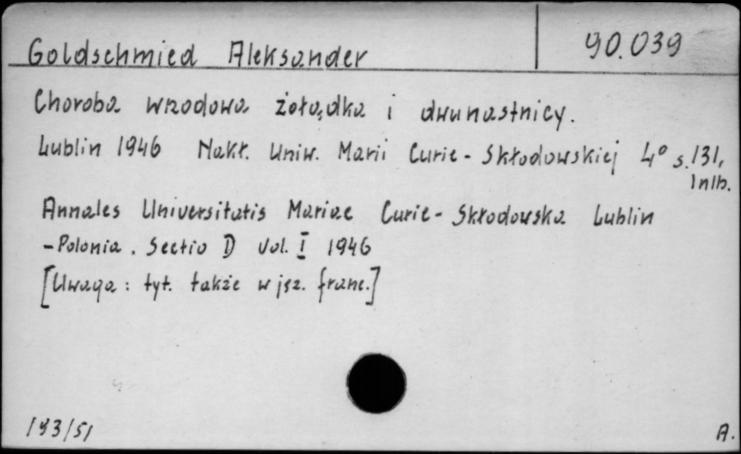 Goldschmied Aleksander 90.039
Choroba wrzodowa żołądka i dwunastnicy.
Lublin 1946 Nakł. Uniw. Marii Curie-Skłodowskiej 4° s. 131,
1 nlb.
Annales Universitatis Mariae Curie-Skłodowska Lublin
-Polonia. Sectio D Vol. I 1946
[Uwaga: tyt. także w jęz. franc.]
193/51
A.